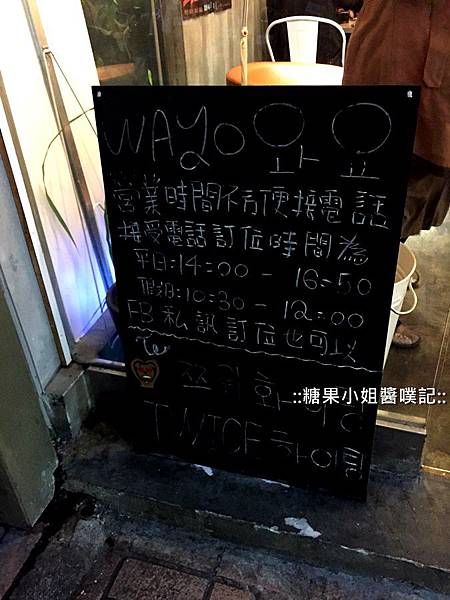 WAYO 와요
營業時間不方便接電話
接受電話訂位時間為
平日:14:00 - 16:50
假期:10:30 - 12:00
FB私訊訂位也可以
쯔위 화이팅
TWICE 화이팅
::糖果小姐醬噗記::